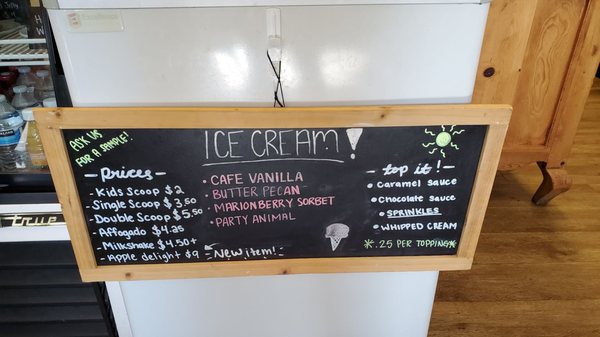 ASK US
FOR A SAMPLE!
Prices
- Kids Scoop $2
- Single Scoop $3.50
- Double Scoop $5.50
- Affogado $4.25
- Milkshake $4.50+
- Apple delight $9
ICE CREAM!
• CAFE VANILLA
• BUTTER PECAN
• MARIONBERRY SORBET
• PARTY ANIMAL
- New item!
top it!
• Caramel sauce
• Chocolate sauce
• SPRINKLES
• WHIPPED CREAM
* .25 PER TOPPING *
true